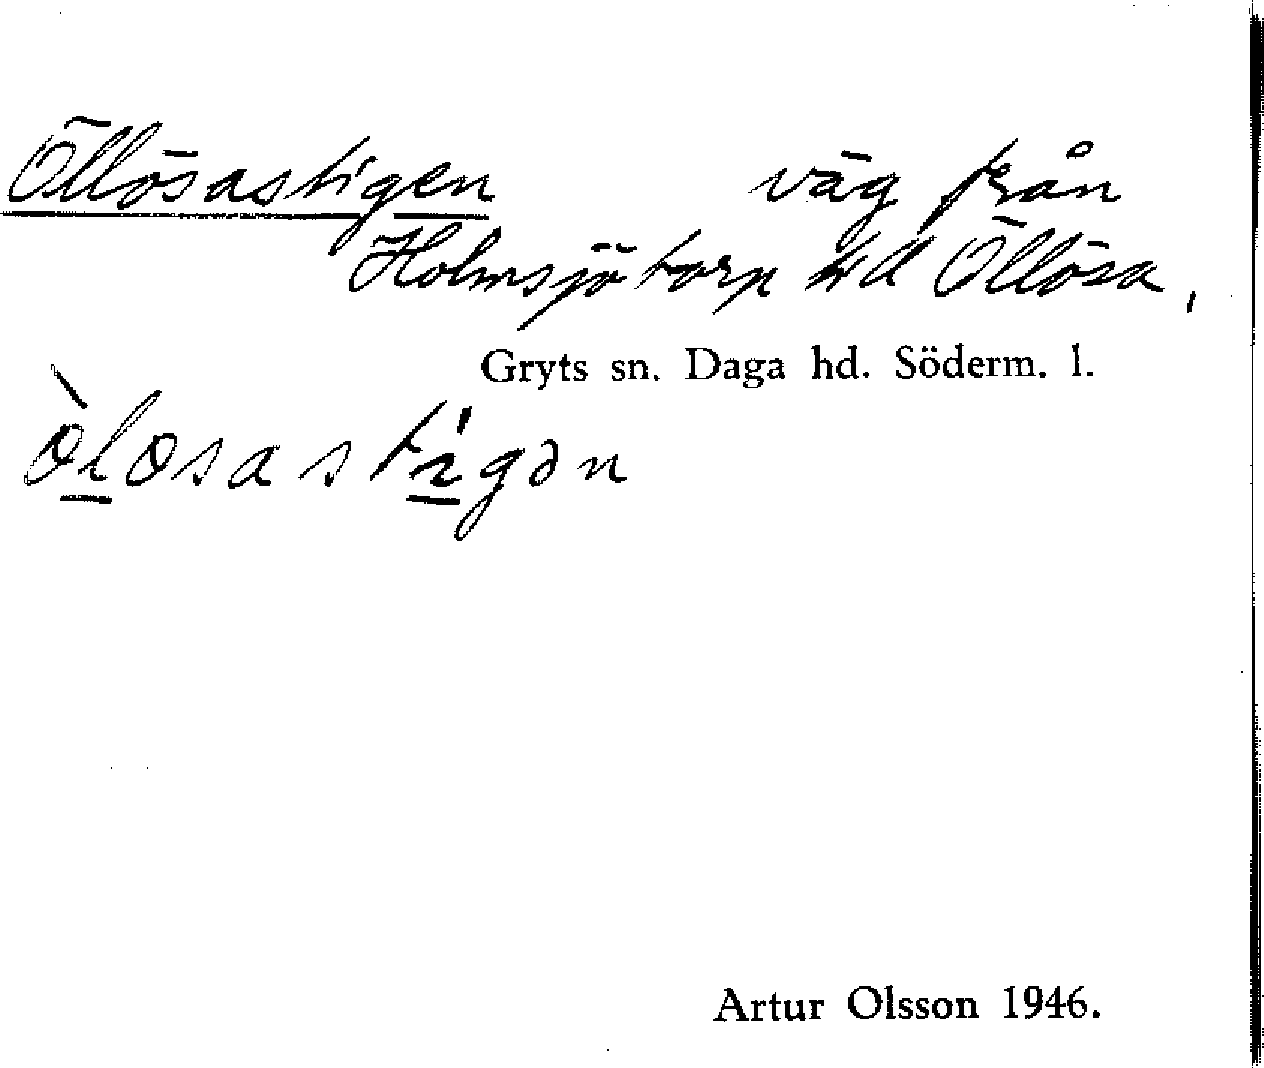 Öllösastigen väg från
Holmsjötorp t.d Öllösa,
Gryts sn. Daga hd. Söderm. l.
Artur Olsson 1946.